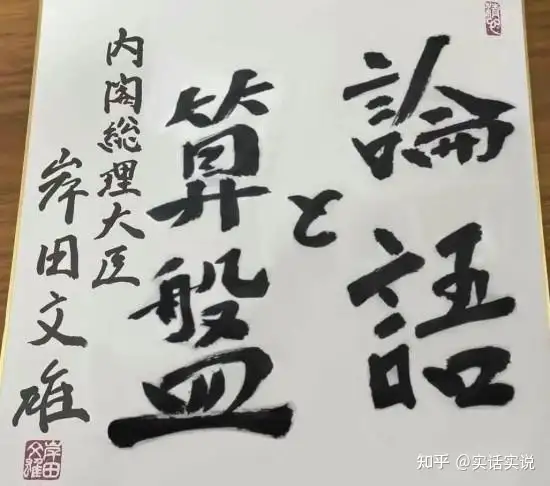 論語
と
算盤
内閣総理大臣
岸田文雄
岸田
文雄
知乎 @实话实说